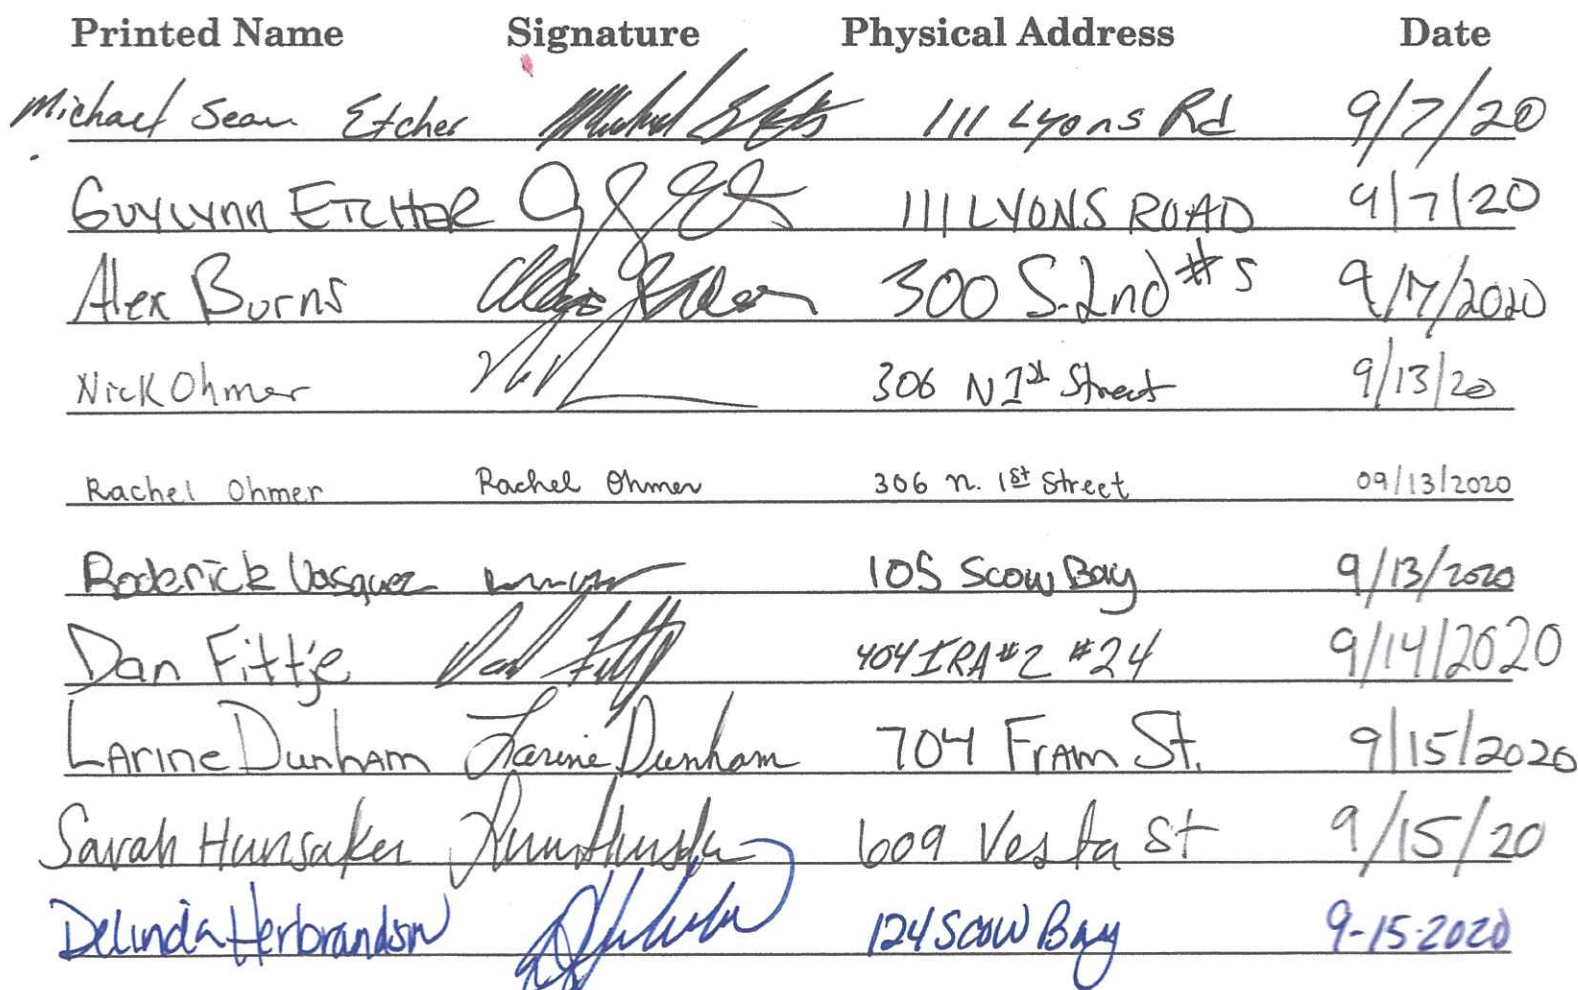 Printed Name Signature Physical Address Date
Michael Sean Etcher 111 Lyons Rd 9/7/20
GUYLYNN ETCHER 111 LYONS ROAD 9/7/20
Alex Burns 300 S. 2nd #5 9/7/2020
Nick Ohmer 306 N 1st Street 9/13/20
Rachel Ohmer Rachel Ohmer 306 N. 1st Street 09/13/2020
Roderick Vasquez 105 Scow Bay 9/13/2020
Dan Fittje Dan 404 IRA #2 #24 9/14/2020
LArine DunhAm Larine Dunham 704 FrAm St. 9/15/2020
Sarah Hunsaker 609 Vesta St 9/15/20
Delinda Herbrandson 124 SCOW Bay 9-15-2020